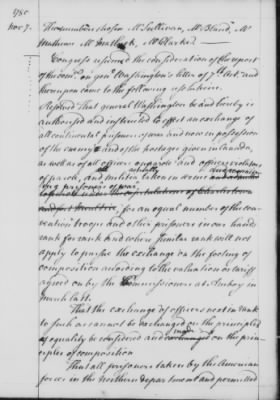 1780
Nov. 7.
The members chosen Mr Sullivan, Mr Bland, Mr
Mathews Mr Mr Clarke
Congress resumed the consideration of the report
of the comee. on genl. Washington's letter of 7th Oct. and
thereupon came to the following resolutions
Resolved That general Washington be and hereby is
authorised and instructed to effect an exchange of
all continental prisoners of war and now in possession
of the enemy and of the hostages given in Canada,
as well as of all officers of parole and officers violators
of parole, and militia taken in arms and actually remain
ing prisoners of war
for an equal number of the con-
vention troops and other prisoners in our hands
rank for rank and where similar rank will not
apply to pursue the exchange on the footing of
composition according to the valuation or tariff
agreed on by the Commissioners at Amboy in
march last.
That the exchange of officers next in rank
to such as cannot be exchanged on the principles
of equality be considered and on the prin-
ciples of composition
That all prisoners taken by the American
forces in the northern department and permitted